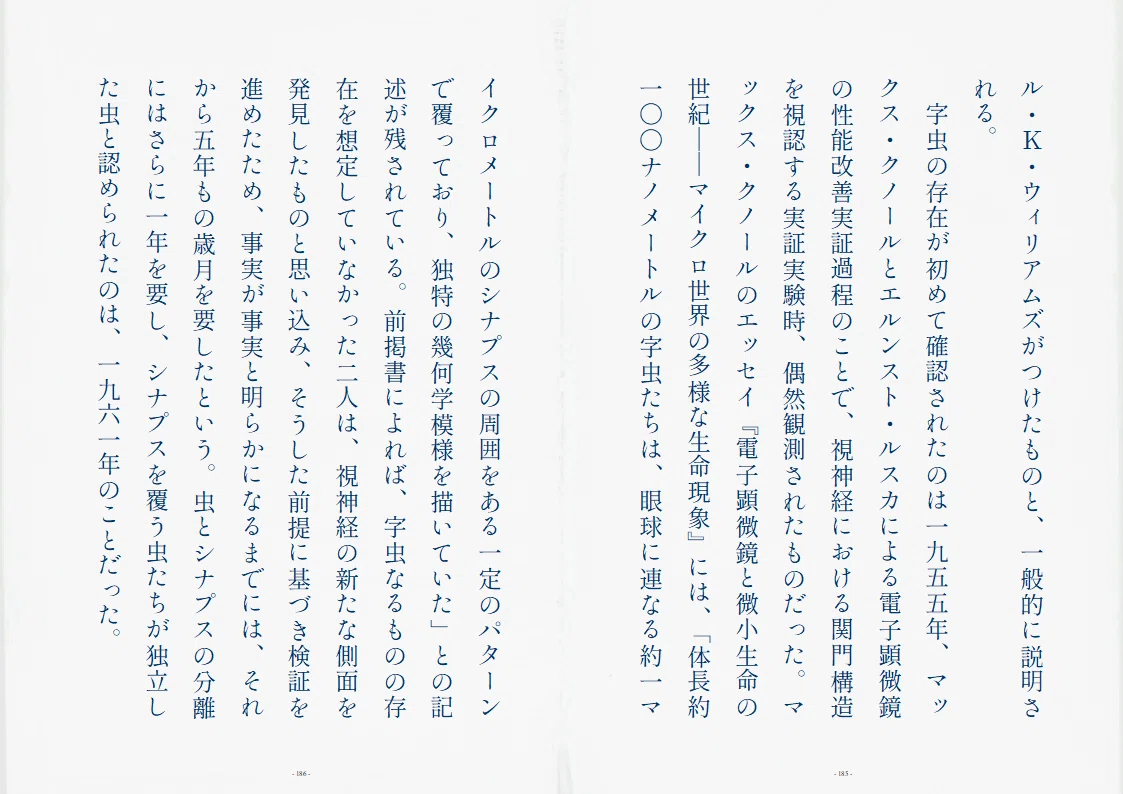 ル・K・ウィリアムズがつけたものと、一般的に説明さ
れる。
　字虫の存在が初めて確認されたのは一九五五年、マッ
クス・クノールとエルンスト・ルスカによる電子顕微鏡
の性能改善実証過程のことで、視神経における関門構造
を視認する実証実験時、偶然観測されたものだった。マ
ックス・クノールのエッセイ『電子顕微鏡と微小生命の
世紀――マイクロ世界の多様な生命現象』には、「体長約
一〇〇ナノメートルの字虫たちは、眼球に連なる約一マ
- 185 -
イクロメートルのシナプスの周囲をある一定のパターン
で覆っており、独特の幾何学模様を描いていた」との記
述が残されている。前掲書によれば、字虫なるものの存
在を想定していなかった二人は、視神経の新たな側面を
発見したものと思い込み、そうした前提に基づき検証を
進めたため、事実が事実と明らかになるまでには、それ
から五年もの歳月を要したという。虫とシナプスの分離
にはさらに一年を要し、シナプスを覆う虫たちが独立し
た虫と認められたのは、一九六一年のことだった。
- 186 -